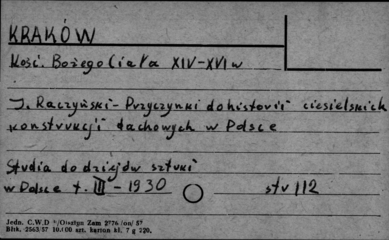 KRAKÓW
Kość. Bożego Ciała XIV-XVI w
J. Raczyński - Przyczynki do historii ciesielskich
konstrukcji dachowych w Polsce
Studia do dziejów sztuki
w Polsce t. III - 1930 str 112
Jedn. C.W.D Olsztyn Zam 57
Bdrk. 2563/57 10.100 szt. karton kl. 7 g 220.